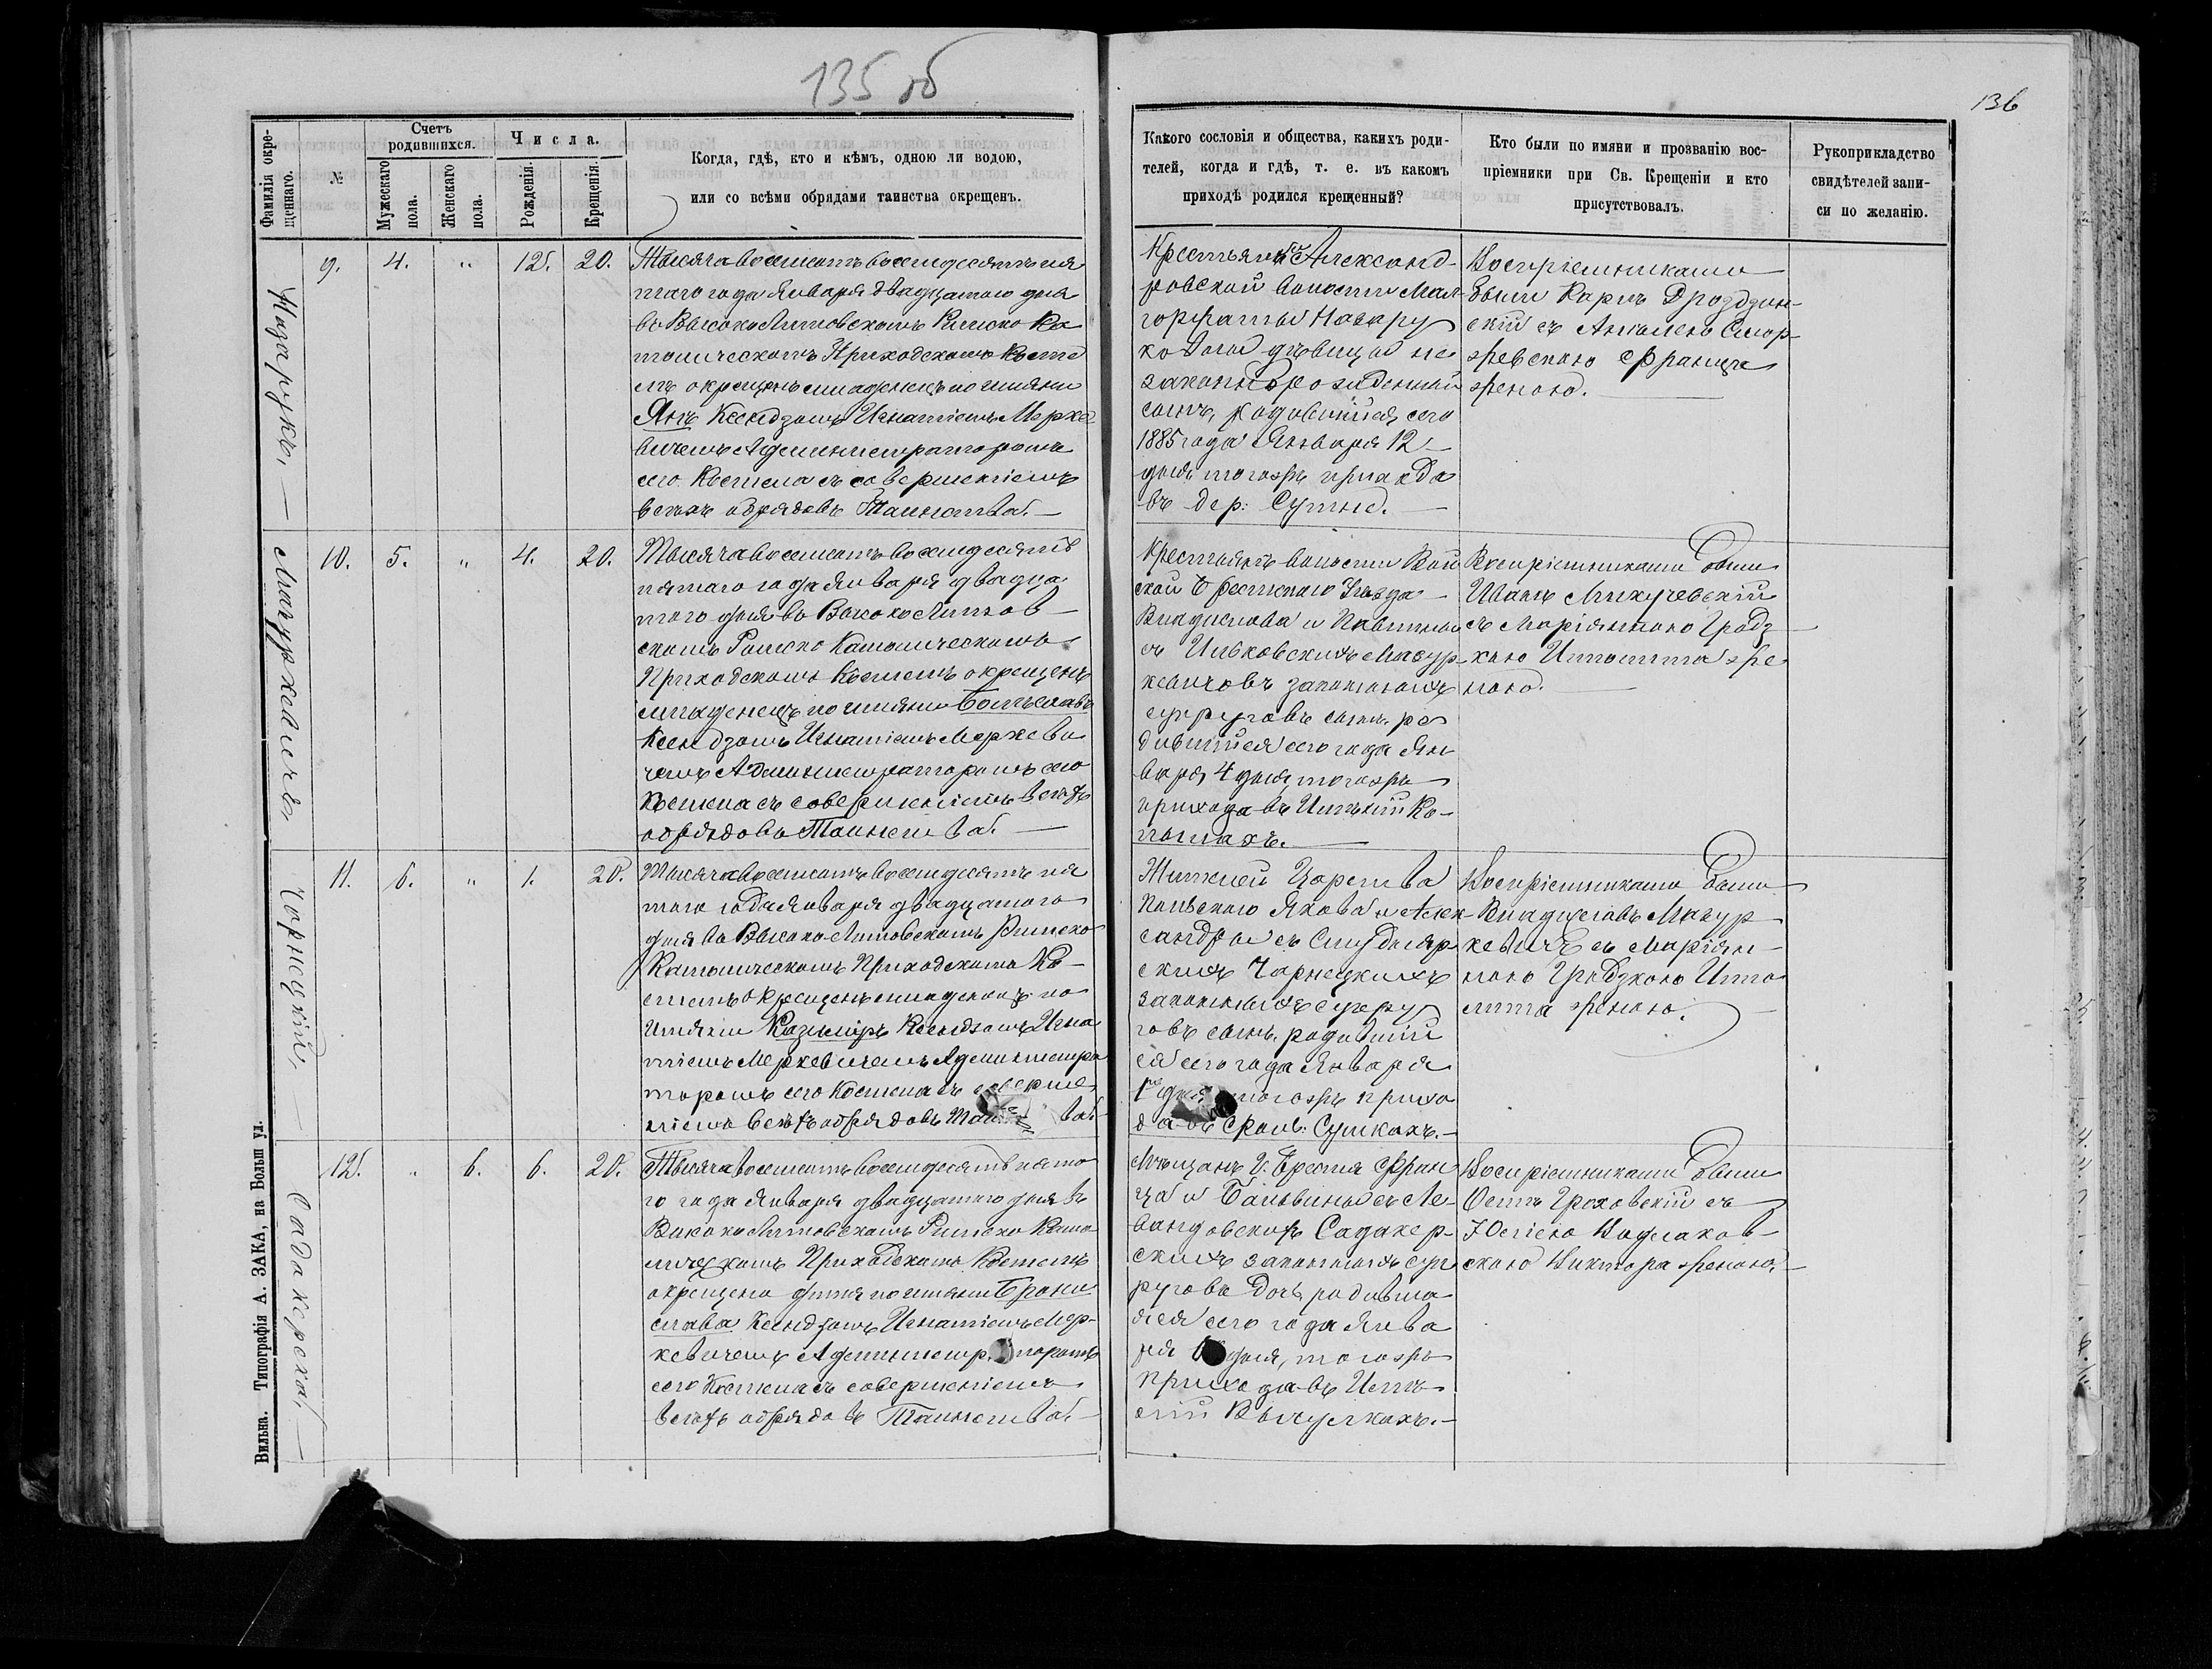 135 об
136
Фамилія окре-
щеннаго.
№
Счетъ
родившихся.
Мужескаго
пола.
Женскаго
пола.
Числа.
Рожденія.
Крещенія.
Когда, гдѣ, кто и кѣмъ, одною ли водою,
или со всѣми обрядами таинства окрещенъ.
Какого сословія и общества, какихъ роди-
телей, когда и гдѣ, т. е. въ какомъ
приходѣ родился крещенный?
Кто были по имяни и прозванію вос-
пріемники при Св. Крещеніи и кто
присутствовалъ.
Рукоприкладство
свидѣтелей запи-
си по желанію.
9. 4. " 12. 20.
Тысяча восемьсотъ восемдесятъ пя
таго года Января двадцатого дня
въ ВысокоЛитовскомъ Римско Ка
толическомъ Приходскомъ Косте
лѣ окрещенъ младенецъ по имяни
Янъ Ксендзомъ Игнатіемъ Мерке
вичемъ Администраторомъ
сего Костела съ совершеніемъ
всѣхъ обрядовъ Таинства.
Александ-
ровской волости Мал-
горжаты Назару
ковой дѣвицы не
законнорожденный
сынъ, родившійся сего
1885 года Января 12
дня, тогожъ прихода
въ дер:
Воспріемниками
были Карлъ Дрозддин-
скій съ
Франца
женою.
Мазуркевичъ
10. 5. " 4. 20.
Тысяча восемьсотъ восемдесятъ
пятаго года Января двадца
того дня въ ВысокоЛитов
скомъ Римско Католическомъ
Приходскомъ Костелѣ окрещенъ
младенецъ по имяни Болеславъ
Ксендзомъ Игнатіемъ Меркеви
чемъ Администраторомъ сего
Костела съ совершеніемъ всѣхъ
обрядовъ Таинства.
Крестьянъ волости Вой
ской Брестскаго Уѣзда
Владислава и Павлины
съ Ильковскихъ Мазур-
кевичовъ законныхъ
супруговъ сынъ, ро
дившійся сего года Ян
варя 4 дня, тогожъ
прихода въ Имѣніи Ко-
Воспріемниками были
Иванъ Микучевскій
съ Маріянною Гродз
кою Ипполита же
ною.
Чарнецкій.
11. 6. " 1. 20.
Тысяча восемьсотъ восемдесятъ пя
того года Января двадцатого
дня въ Высоко-Литовскомъ Римско
Католическомъ Приходскомъ Ко-
стелѣ окрещенъ младенецъ по
Имяни Казиміръ Ксендзомъ Игна
тіемъ Меркевичемъ Администра
торомъ сего Костела съ соверше
ніемъ всѣхъ обрядовъ Таи ва.
Жителей Царства
Польскаго Якова и Алек
сандры съ
скихъ Чарнецкихъ
законныхъ супру
говъ сынъ, родивший
ся сего года Января
1го дня тогожъ прихо
да въ Сушкахъ.
Воспріемниками были
Владиславъ Мазур
кевичъ съ Маріян
ною Гродзкою Иппо
лита женою.
Садакерска.
12. " 6. 6. 20.
Тысяча восемьсотъ восемдесятъ пято
го года Января двадцатого дня въ
ВысокоЛитовскомъ Римско Като
лическомъ Приходскомъ Костелѣ
окрещено дитя по имяни Брони
слава Ксендзомъ Игнатіемъ Мер-
кевичемъ Администр торомъ
сего Костела съ совершеніемъ
всѣхъ обрядовъ Таинства.
Мѣщанъ Г. Бреста Фран
ца и Бальвины съ Ле-
вандовскихъ Садакер-
скихъ законныхъ суп
руговъ дочь, родивша
яся сего года Янва
ря 6 дня, тогожъ
прихода въ Имѣ-
ніи Вычулкахъ.
Воспріемниками были
Осипъ Гроховскій съ
Юліею
скою Виктора женою.
Вильна. Типографія А. ЗАКА, на Больш ул.